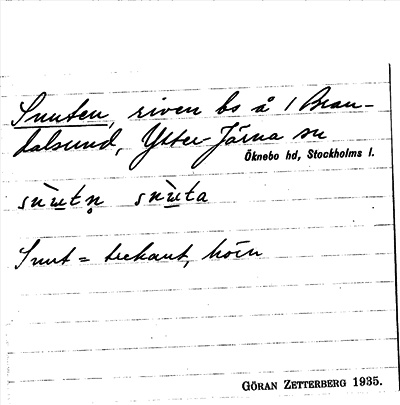 Snuten, riven bs å / Bran-
dalsund, Ytter-Järna sn
Öknebo hd, Stockholms l.
snùtn̥ snùta
Snut = hörn
GÖRAN ZETTERBERG 1935.